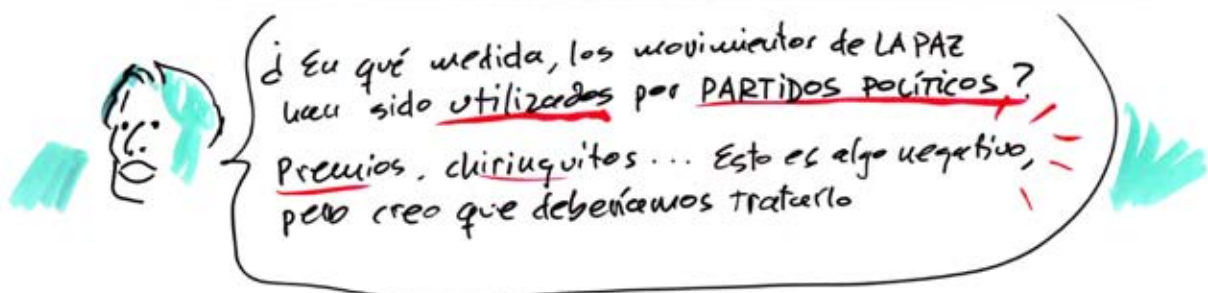 ¿En qué medida, los movimientos de LA PAZ
han sido utilizados por PARTIDOS POLÍTICOS?
Premios, chiringuitos... Esto es algo negativo,
pero creo que deberíamos tratarlo